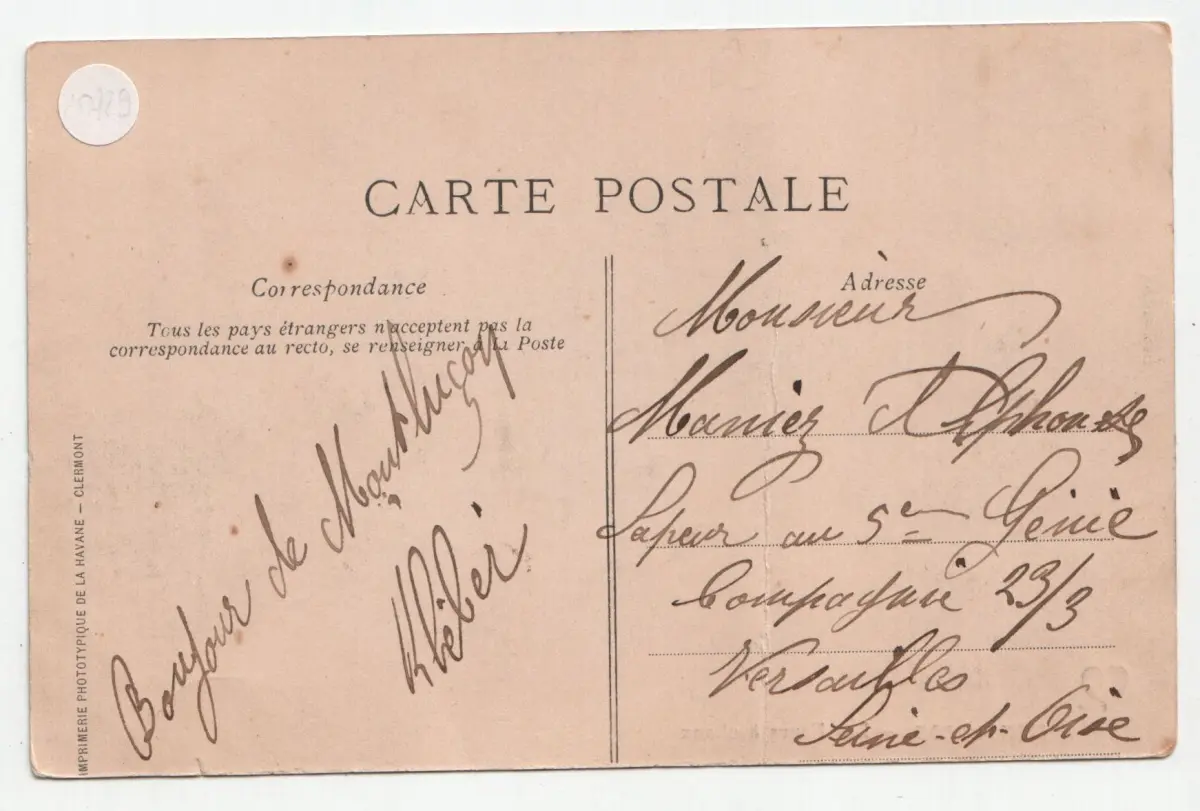 CARTE POSTALE
Correspondance
Tous les pays étrangers n'acceptent pas la
correspondance au recto, se renseigner à la Poste
Bonjour de Montluçon
Khléber
IMPRIMERIE PHOTOTYPIQUE DE LA HAVANE — CLERMONT
Adresse
Monsieur
Maniez Alphonse
Sapeur au 5em Génie
Compagnie 23/3
Versailles
Seine-et-Oise